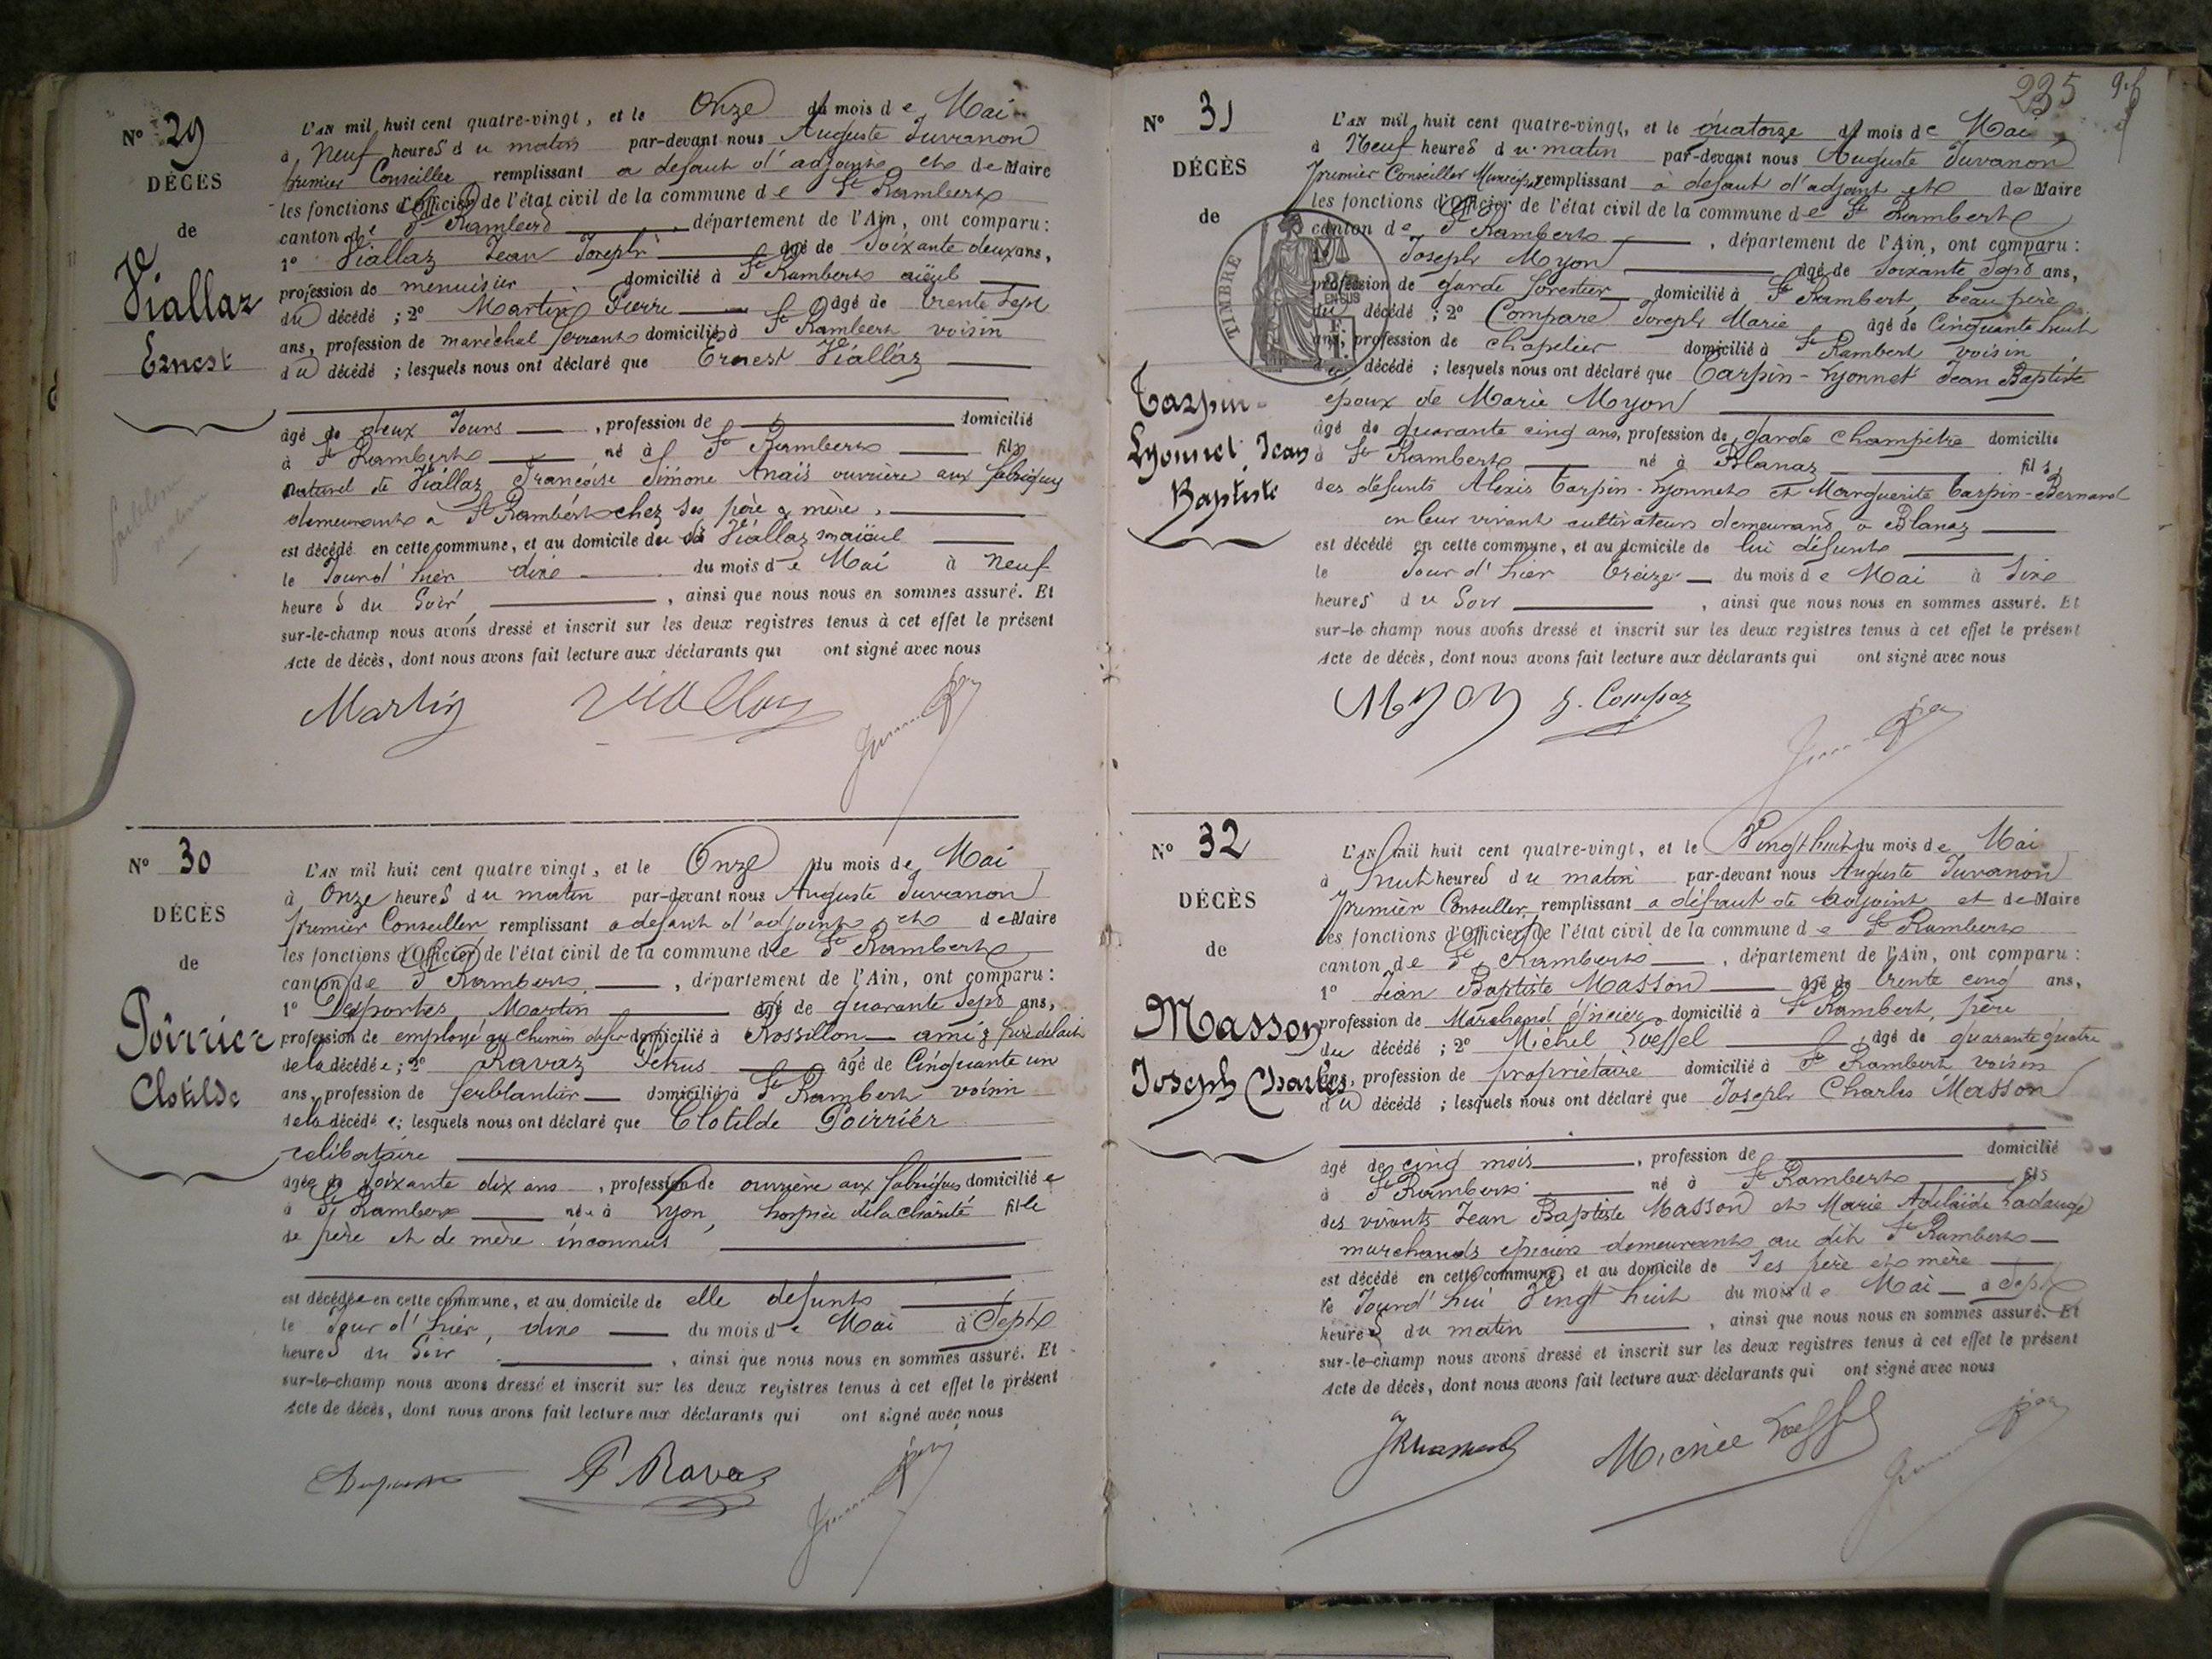 N° 29
DÉCÈS
de
Viallaz
Ernest
L'AN mil huit cent quatre-vingt, et le Onze du mois de Mai
à Neuf heures du matin par-devant nous Auguste Juvanon
premier Conseiller remplissant a defaut d'adjoint et de Maire
les fonctions d'Officier de l'état civil de la commune de St Rambert
canton de St Rambert, département de l'Ain, ont comparu :
1° Viallaz Jean Joseph âgé de soixante deux ans,
profession de menuisier domicilié à St Rambert aïeul
du décédé ; 2° Martin Pierre âgé de trente sept
ans, profession de maréchal ferrant domicilié à St Rambert voisin
du décédé ; lesquels nous ont déclaré que Ernest Viallaz
âgé de deux jours, profession de domicilié
à St Rambert né à St Rambert fils
naturel de Viallaz Françoise Simone Anaïs ouvrière aux fabriques
demeurant a St Rambert chez ses père & mère,
est décédé en cette commune, et au domicile du dt Viallaz aïeul
le Jour d'hier dix du mois de Mai à neuf
heures du soir, ainsi que nous nous en sommes assuré. Et
sur-le-champ nous avons dressé et inscrit sur les deux registres tenus à cet effet le présent
Acte de décès, dont nous avons fait lecture aux déclarants qui ont signé avec nous
Martin Viallaz
N° 30
DÉCÈS
de
Poirrier
Clotilde
L'AN mil huit cent quatre vingt, et le Onze du mois de Mai
à Onze heures du matin par-devant nous Auguste Juvanon
premier Conseiller remplissant a defaut d'adjoint et de Maire
les fonctions d'Officier de l'état civil de la commune de St Rambert
canton de St Rambert, département de l'Ain, ont comparu :
1° Desportes Martin âgé de quarante sept ans,
profession de employé au chemin de fer domicilié à Rossillon ami & frère de lait
de la décédée ; 2° Ravaz Petrus âgé de Cinquante un
ans, profession de ferblantier domicilié à St Rambert voisin
de la décédée ; lesquels nous ont déclaré que Clotilde Poirrier
celibataire
âgée de soixante dix ans, profession de ouvrière aux fabriques domiciliée
à St Rambert née à Lyon, hospice de la charité fille
de père et de mère inconnus
est décédée en cette commune, et au domicile de elle defunte
le jour d'hier, dix du mois de Mai à Sept
heures du soir, ainsi que nous nous en sommes assuré. Et
sur-le-champ nous avons dressé et inscrit sur les deux registres tenus à cet effet le présent
Acte de décès, dont nous avons fait lecture aux déclarants qui ont signé avec nous
P Ravaz
235
N° 31
DÉCÈS
de
TIMBRE
Tarpin-
Lyonnet Jean
Baptiste
L'AN mil huit cent quatre-vingt, et le quatorze du mois de Mai
à Neuf heures du matin par-devant nous Auguste Juvanon
premier Conseiller Municipal remplissant à defaut d'adjoint et de Maire
les fonctions d'Officier de l'état civil de la commune de St Rambert
canton de St Rambert, département de l'Ain, ont comparu :
1° Joseph Myon âgé de soixante sept ans,
profession de garde forestier domicilié à St Rambert, beau père
du décédé ; 2° Compare Joseph Marie âgé de Cinquante huit
ans, profession de chapelier domicilié à St Rambert voisin
du décédé ; lesquels nous ont déclaré que Tarpin-Lyonnet Jean Baptiste
époux de Marie Myon
âgé de quarante cinq ans, profession de garde champêtre domicilié
à St Rambert né à Blanaz fils
des défunts Alexis Tarpin-Lyonnet et Marguerite Tarpin-Bernard
en leur vivant cultivateurs demeurant à Blanaz
est décédé en cette commune, et au domicile de lui défunt
le Jour d'hier treize du mois de Mai à Six
heures du soir, ainsi que nous nous en sommes assuré. Et
sur-le-champ nous avons dressé et inscrit sur les deux registres tenus à cet effet le présent
Acte de décès, dont nous avons fait lecture aux déclarants qui ont signé avec nous
Myon
N° 32
DÉCÈS
de
Masson
Joseph Charles
L'AN mil huit cent quatre-vingt, et le Vingt huit du mois de Mai
à huit heures du matin par-devant nous Auguste Juvanon
premier Conseiller, remplissant a défaut de adjoint et de Maire
les fonctions d'Officier de l'état civil de la commune de St Rambert
canton de St Rambert, département de l'Ain, ont comparu :
1° Jean Baptiste Masson âgé de trente cinq ans,
profession de Marchand épicier domicilié à St Rambert, père
du décédé ; 2° Michel Loeffel âgé de quarante quatre
ans, profession de propriétaire domicilié à St Rambert voisin
du décédé ; lesquels nous ont déclaré que Joseph Charles Masson
âgé de cinq mois, profession de domicilié
à St Rambert né à St Rambert fils
des vivants Jean Baptiste Masson et Marie Adelaïde
marchands épiciers demeurants au dit St Rambert
est décédé en cette commune, et au domicile de ses père et mère
le Jourd'hui Vingt huit du mois de Mai à sept
heures du matin, ainsi que nous nous en sommes assuré. Et
sur-le-champ nous avons dressé et inscrit sur les deux registres tenus à cet effet le présent
Acte de décès, dont nous avons fait lecture aux déclarants qui ont signé avec nous
Michel Loeffel